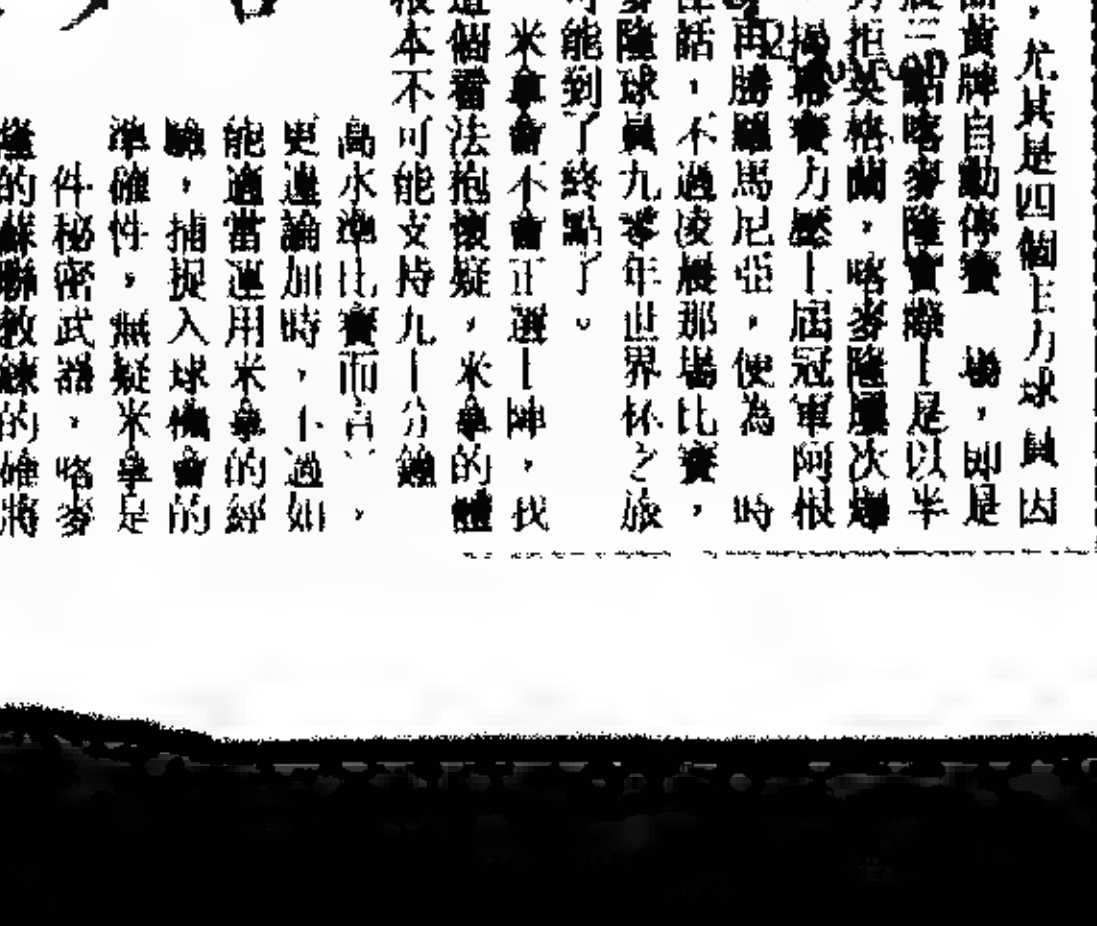 ，尤其是四個主力球員因
黃牌自動停賽　場，即是
三點喀麥隆實際上是以半
拒英格蘭，喀麥隆屢次
揭幕賽力壓上屆冠軍阿根
再勝羅馬尼亞，便為　時
話，不過凌晨那場比賽，
麥隆球員九零年世界杯之旅
可能到了終點了。
米拿會不會正選上陣，找
這個看法抱懷疑，米拿的體
根本不可能支持九十分鐘
高水準比賽而言，
更遑論加時，不過如
能適當運用米拿的經
驗，捕捉入球機會的
準確性，無疑米拿是
件秘密武器，喀麥
隆的蘇聯教練的確將